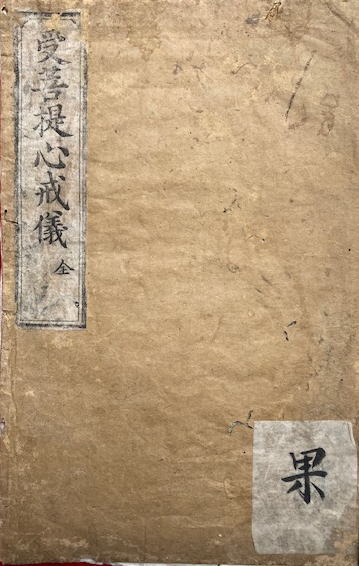 受菩提心戒儀 全
果